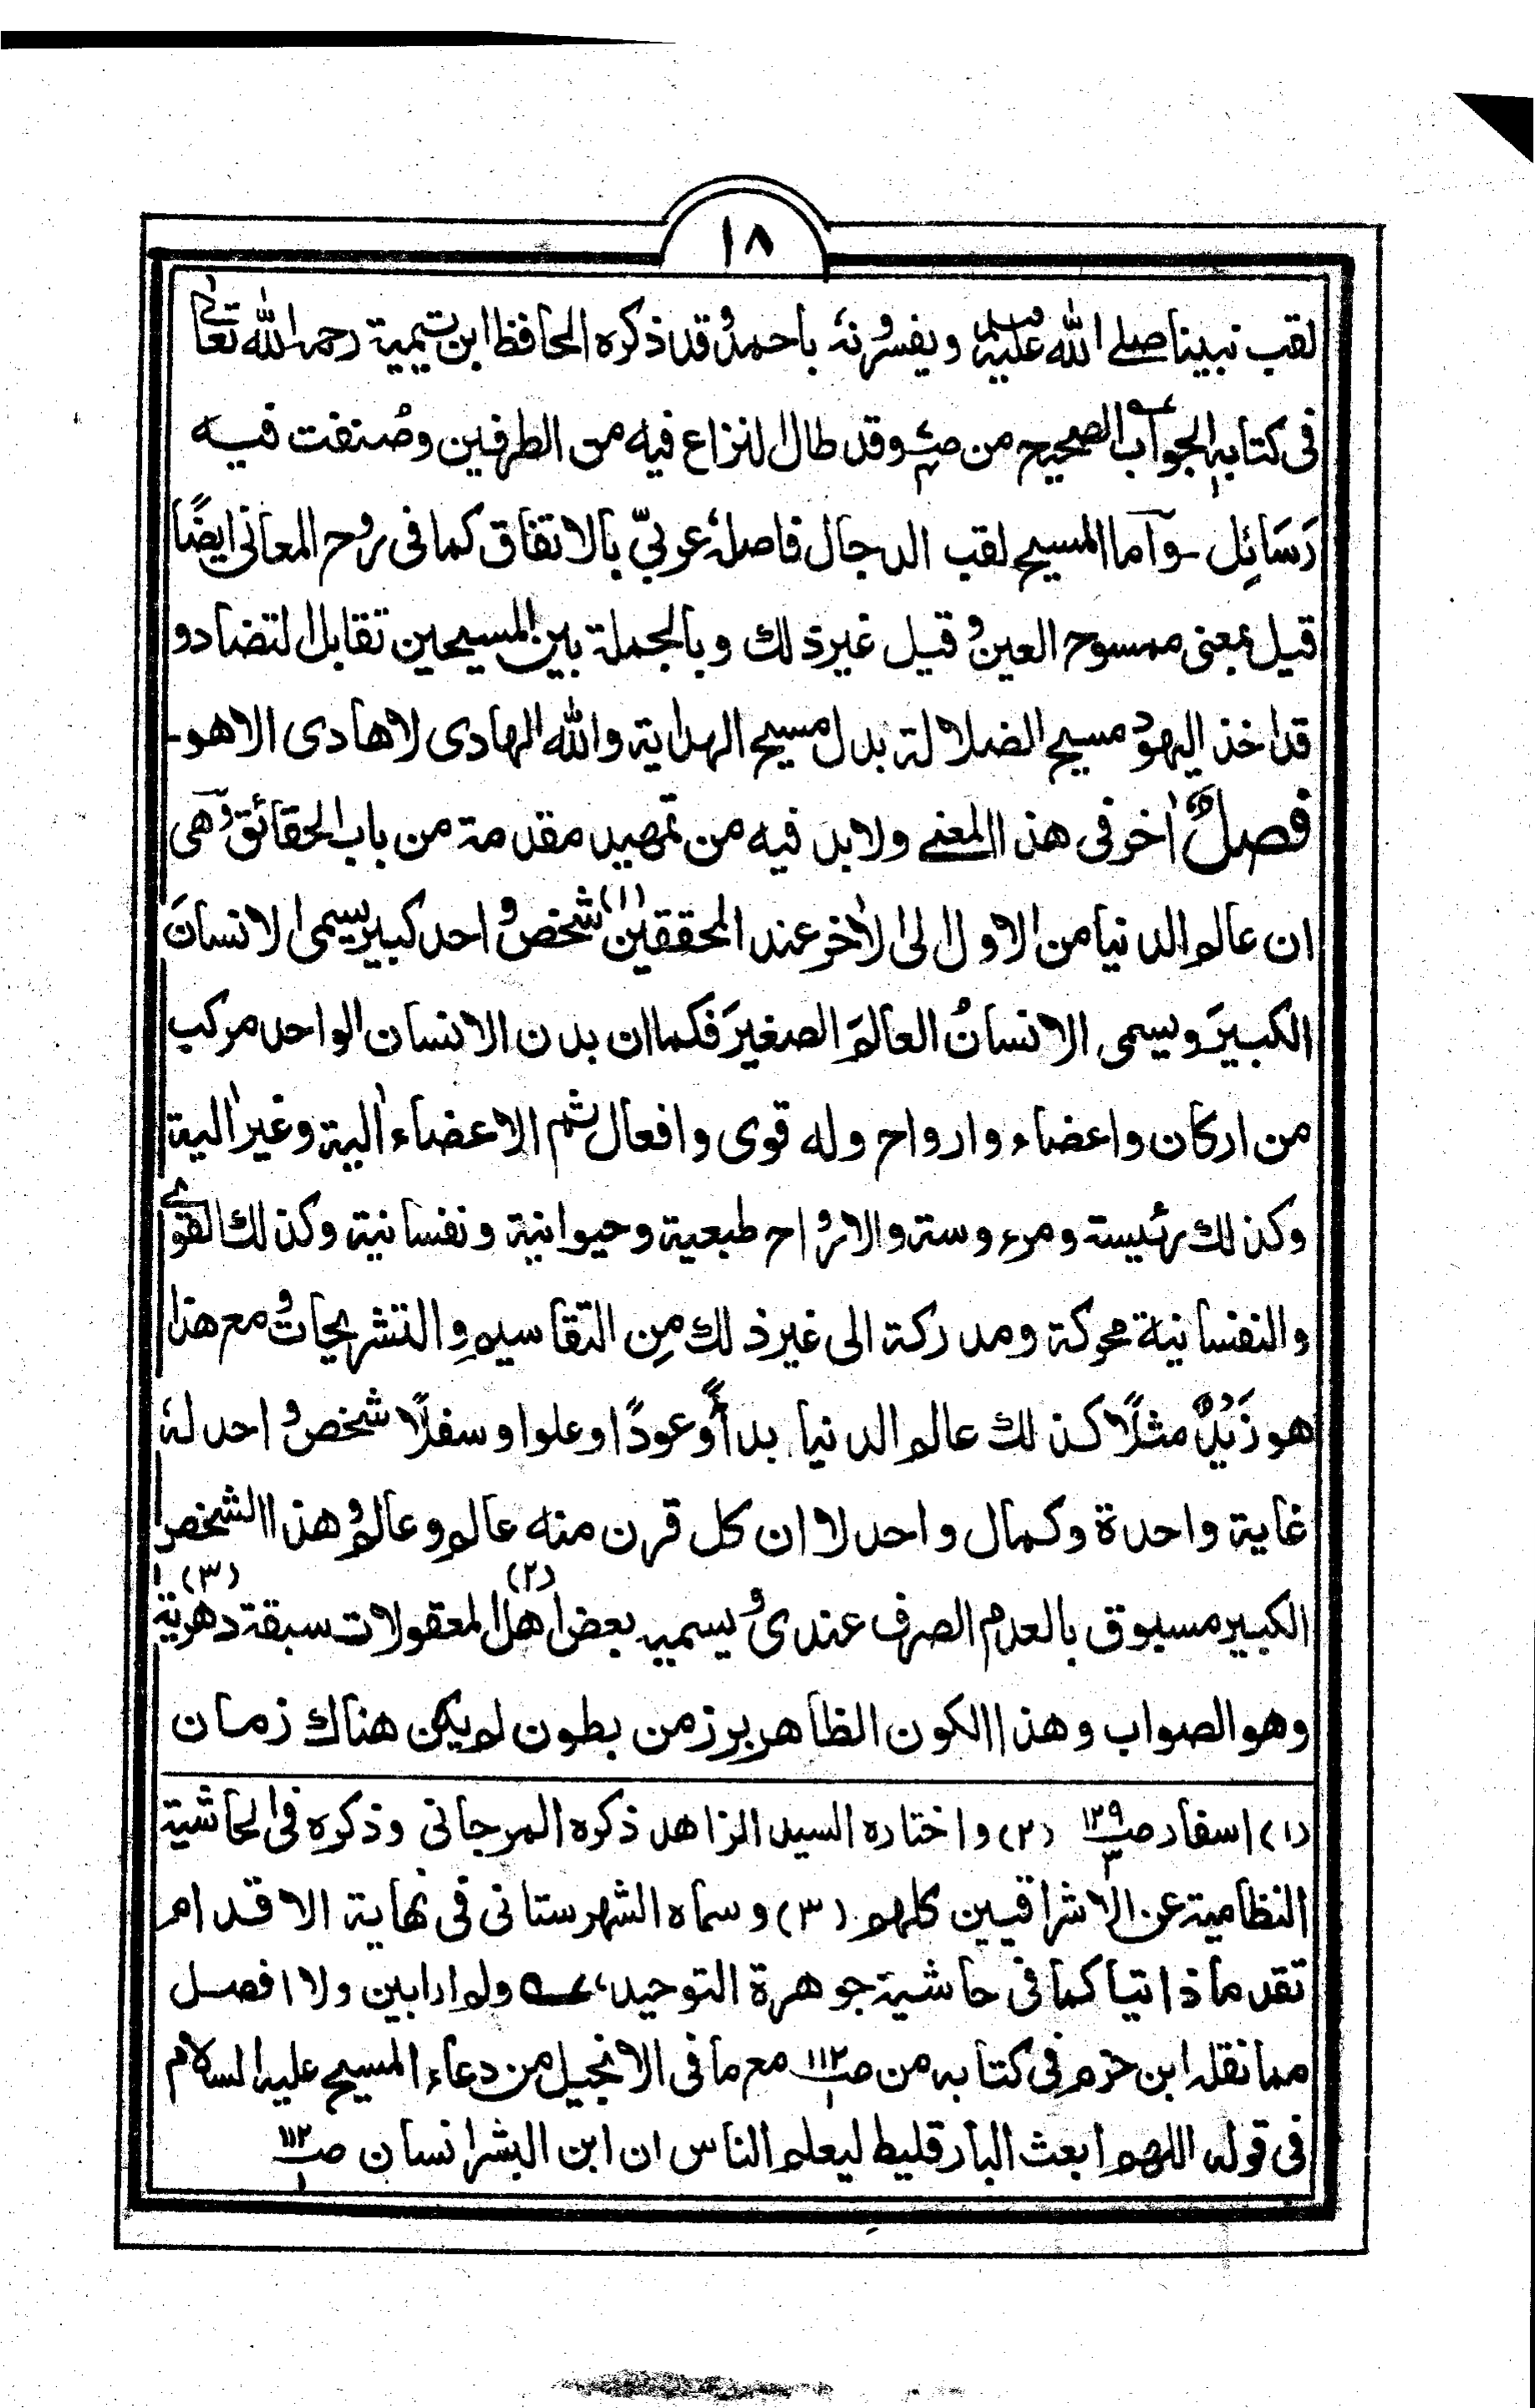 ١٨
لقب نبينا صلے الله عليه وسلم ويفسرونه باحمد وقد ذكره الحافظ ابن تيمية رحمه الله تعالیٰ
فى كتابه الجواب الصحيح من صـ وقد طال النزاع فيه من الطرفين وصُنفت فيه
رَسَائِل ـ وآما المسيح لقب الدجال فاصلهٗ عربيّ بالاتفاق كما فى روح المعانى ايضًا
قيل بمعنى ممسوح العين وقيل غير ذلك وبالجملة بين المسيحين تقابل التضاد و
قد اخذ اليهود مسيح الضلالة بدل مسيح الهداية والله الهادى لا هادى الا هو ـ
فصلٌ اٰخر فى هذا المعنے ولابد فيه من تمهيد مقدمة من باب الحقائق وهى
ان عالم الدنيا من الاول الى الاٰخر عند المحققين (١) شخص واحد كبير يسمى الانسانَ
الكبيرَ ويسمى الانسانُ العالمَ الصغيرَ فكما ان بدن الانسان الواحد مركب
من اركان واعضاء وارواح وله قوى وافعال ثم الاعضاء اٰلية وغير اٰلية
وكذلك رئيسة ومرءوسة والارواح طبعية وحيوانية ونفسانية وكذلك القوے
والنفسانية محركة ومدركة الى غير ذلك مِن التقاسيمِ والتشريحات ومع هذا
هو زَيْدٌ مثلًا كذلك عالم الدنيا بدأً وعودًا وعلوا وسفلًا شخص واحد لهٗ
غاية واحدة وكمال واحد لا ان كل قرن منه عالم وعالمُ هذا الشخص
الكبير مسبوق بالعدم الصرف عندى ويسميه بعض (٢) اهل المعقولات سبقة دهرية (٣)
وهو الصواب وهذا الكون الظاهر برز من بطون لم يكن هناك زمان
(١) اسفار صـ ١٣٩/٣ (٢) واختاره السيد الزاهد ذكره المرجانى وذكره فى الحاشية
النظامية عن الاشراقيين كلهم. (٣) وسماه الشهرستانى فى نهاية الاقدام
تقدما ذاتيا كما فى حاشية جوهرة التوحيد، ولم ار ابين ولا افصل
مما نقله ابن حزم فى كتابه من صـ ١١٢/١ مع ما فى الانجيل من دعاء المسيح عليه السلام
فى قوله اللهم ابعث البارقليط ليعلم الناس ان ابن البشر انسان صـ ١١٢/١